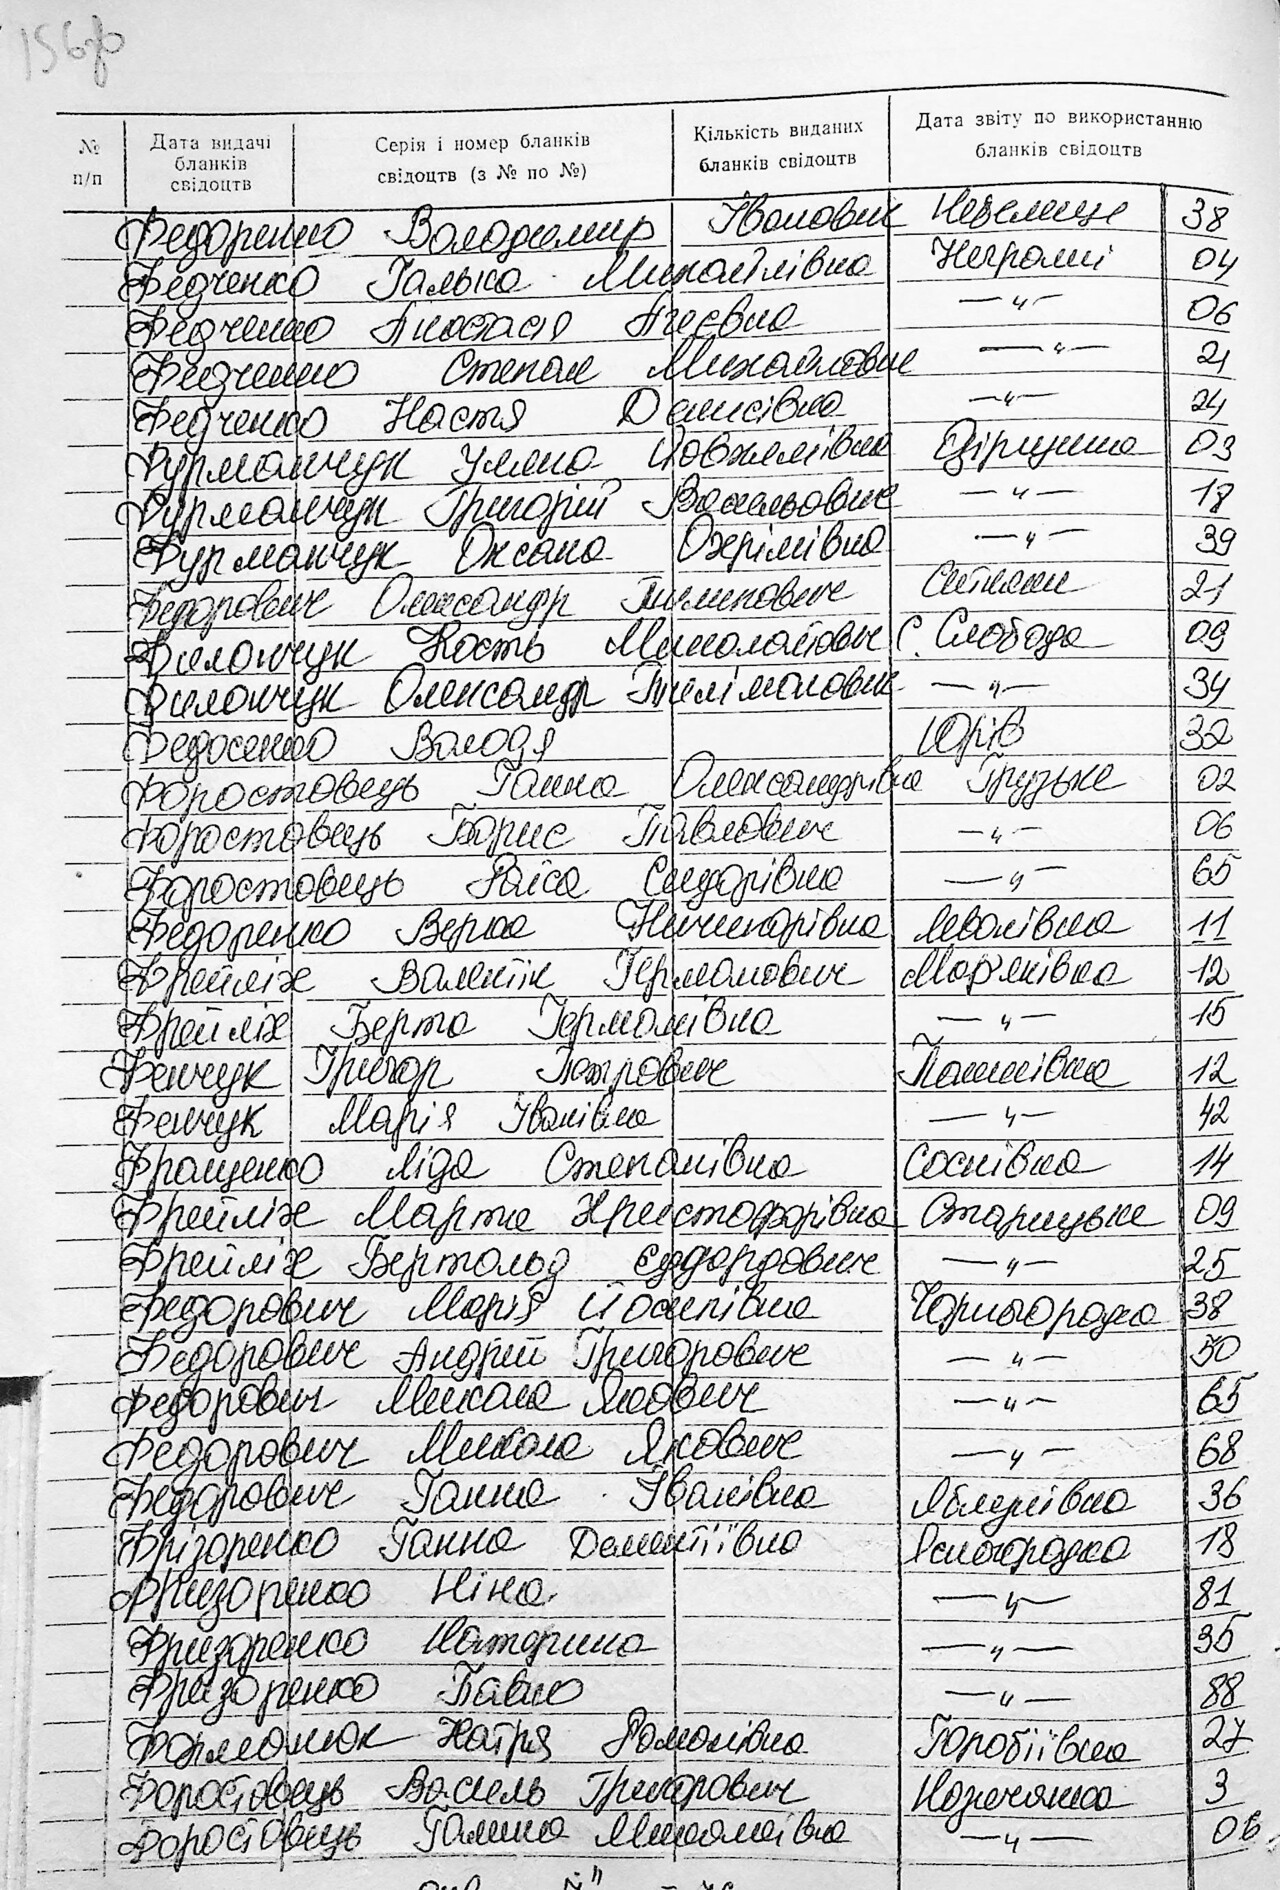 156зв
№ п/п Дата видачі бланків свідоцтв Серія і номер бланків свідоцтв (з № по №) Кількість виданих бланків свідоцтв Дата звіту по використанню бланків свідоцтв
Федоренко Володимир Іванович 38
Федченко Галька Михайлівна Неграші 04
Федченко Анастасія Агієвна —〃— 06
Федченко Степан Михайлович —〃— 21
Федченко Настя Денисівна —〃— 24
Фурманчук Уляна 03
Фурманчук Григорій Васильович —〃— 18
Фурманчук Оксана Охрімівна —〃— 39
Федорович Олександр Тимкович Ситняки 21
Филончук Кость Миколайович С. Слобода 09
Филончук Олександр Пилімонович —〃— 34
Федосенко Володя Юрів 32
Форостовець Ганна Олександрівна Грузьке 02
Форостовець Борис Павлович —〃— 06
Форостовець Раїса Сидорівна —〃— 65
Федоренко Верка Ничипорівна Леонівка 11
Фрейліх Валентін Германович Мар'янівка 12
Фрейліх Берта Германівна —〃— 15
Фенчук Григор Петрович Пашківка 12
Фенчук Марія Іванівна —〃— 42
Фращенко Ліда Степанівна Соснівка 14
Фрейліх Марта Христофорівна Старицьке 09
Фрейліх Бертольд Еддордович —〃— 25
Федорович Марія Йосипівна Чорногородка 38
Федорович Андрій Григорович —〃— 50
Федорович Микола Якович —〃— 65
Федорович Микола Якович —〃— 68
Федорович Ганна Іванівна Яблунівка 36
Фрізоренко Ганна Дементіївна Ясногородка 18
Фризоренко Ніна —〃— 81
Фризоренко Катерина —〃— 35
Фризоренко Павло —〃— 88
Форманюк Катря Романівна Горобіївка 27
Форостовець Василь Григорович 3
Форостовець Галина Миколаївна —〃— 06